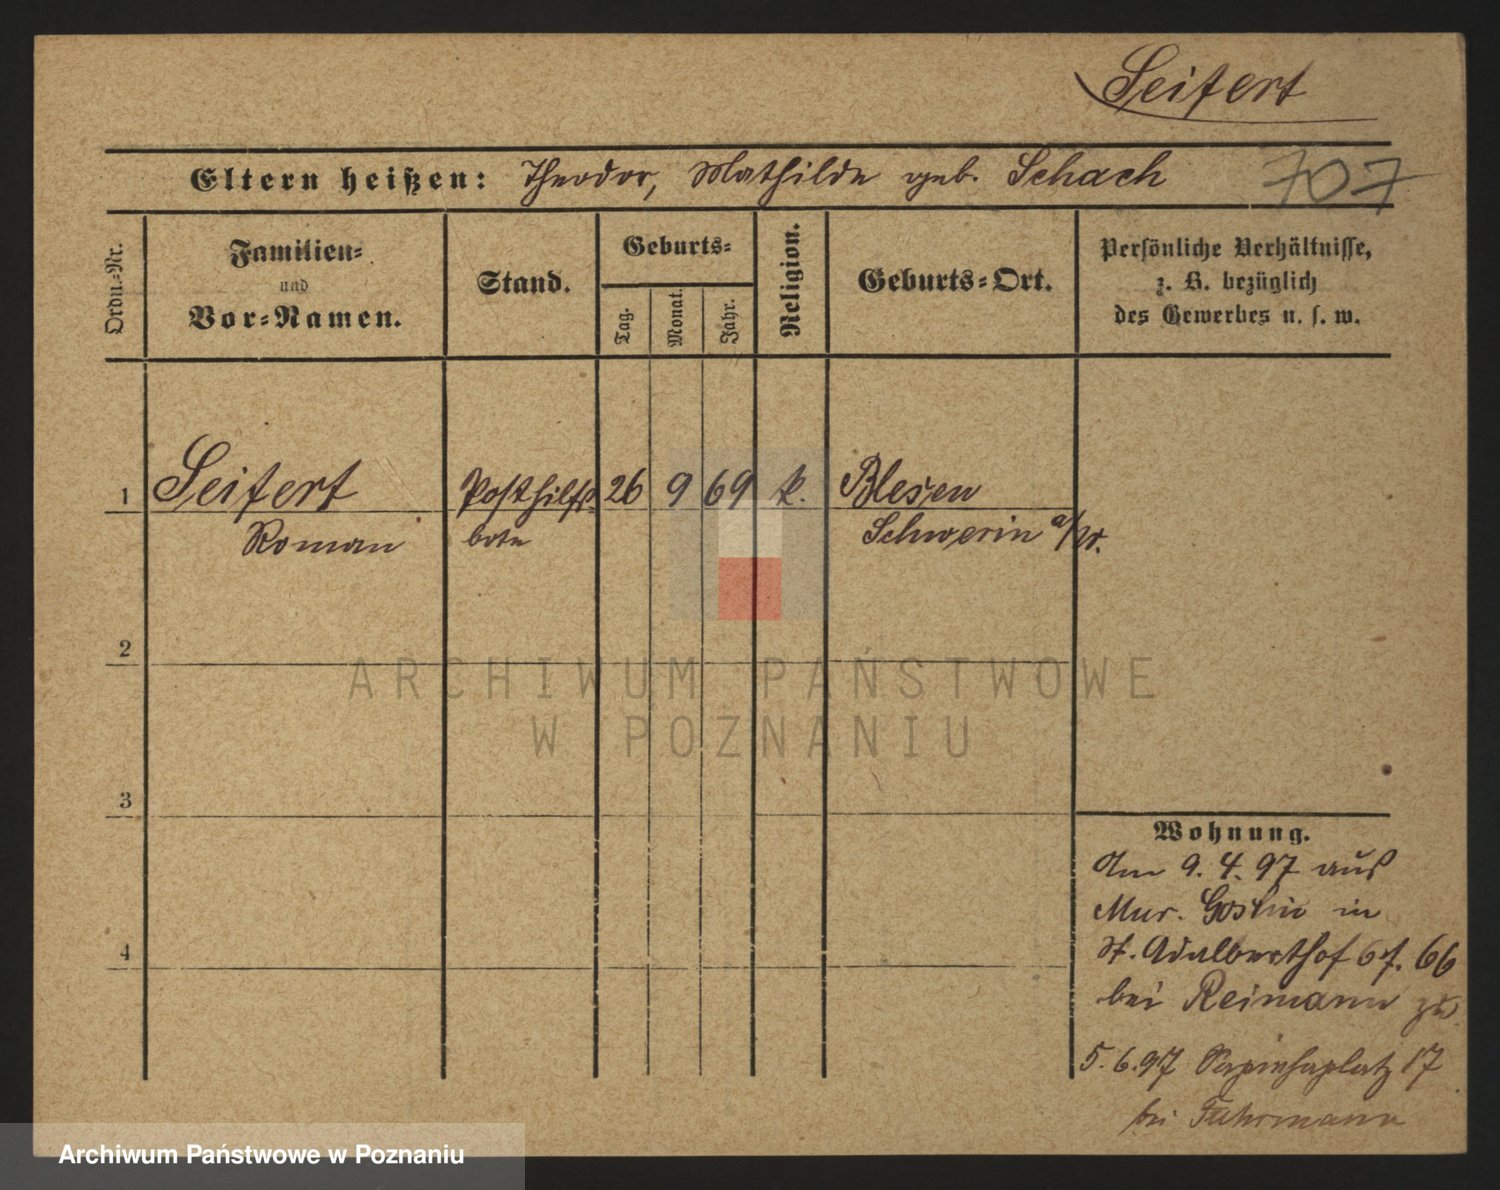 Seifert
Eltern heißen: Theodor, Mathilde geb. Schach 707
Ordn.-Nr.
Familien-
und
Vor-Namen.
Stand.
Geburts-
Tag.
Monat.
Jahr.
Religion.
Geburts-Ort.
Persönliche Verhältnisse,
z. B. bezüglich
des Gewerbes u. s. w.
1 Seifert Posthilfs 26 9 69 k. Blesen
Roman bote Schwerin a/W.
2
3
4
Wohnung.
Am 9.4.97 aus
Mur. Goslin in
St. Adalberthof 66
bei Reimann zu
5.6.97 Sapiehaplatz 17
bei Fuhrmann
ARCHIWUM PAŃSTWOWE
W POZNANIU
Archiwum Państwowe w Poznaniu